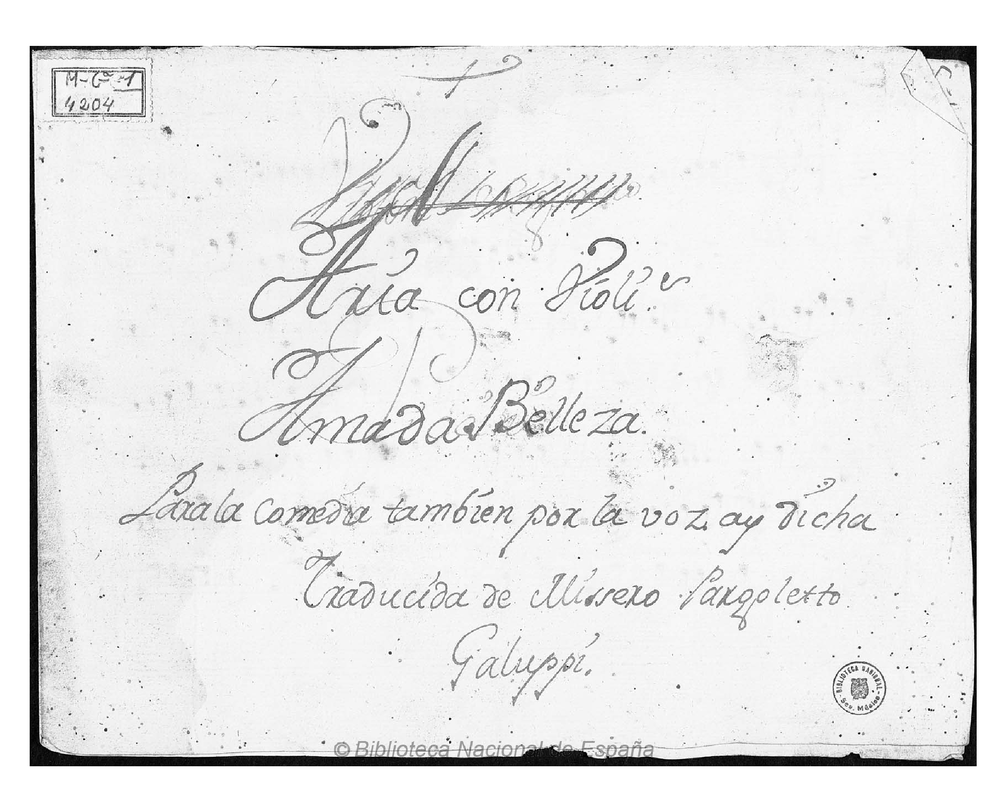 M-Cª-1
4204
Aria con Violi.s
Amada Belleza.
Para la Comedia tambien por la voz ay dicha
Traducida de Missero Pargoletto
Galuppi.
BIBLIOTECA NACIONAL
Sec. Música
© Biblioteca Nacional de España